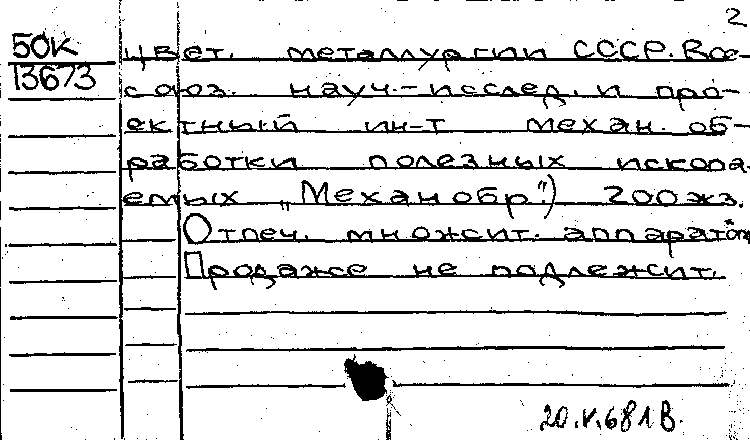 2
50К цвет. металлургии СССР. Все-
13673 союз. науч.-исслед. и про-
ектный ин-т механ. об-
работки полезных ископа-
емых „Механобр") 200 экз.
Отпеч. множит. аппаратом
Продаже не подлежит.
20.V.68